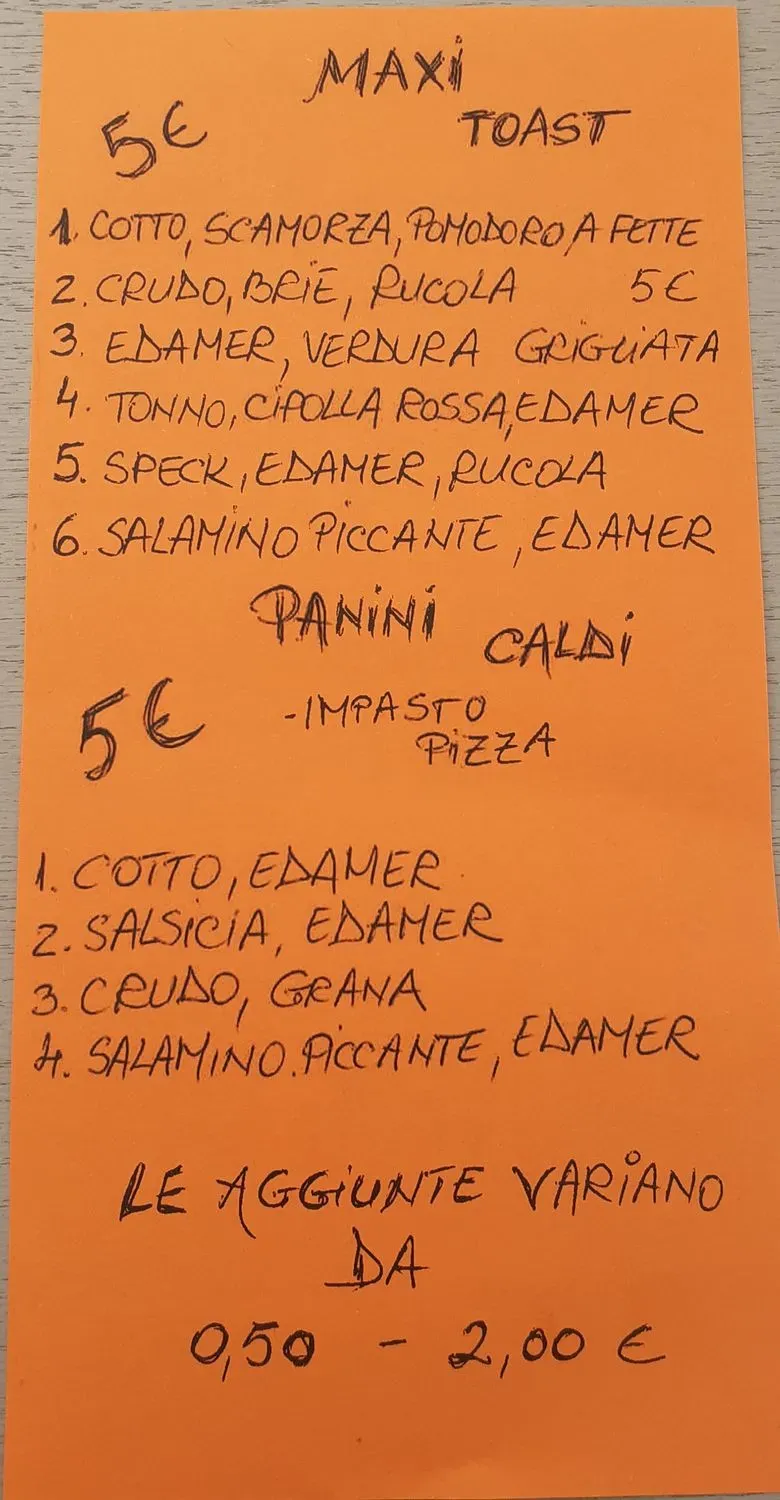 MAXi
TOAST
5€
1. COTTO, SCAMORZA, POMODORO A FETTE
2. CRUDO, BRiE, RUCOLA 5€
3. EDAMER, VERDURA GRiGLiATA
4. TONNO, CiPOLLA ROSSA, EDAMER
5. SPECK, EDAMER, RUCOLA
6. SALAMiNO PiCCANTE, EDAMER
PANiNi CALDi
5€ -IMPASTO
PiZZA
1. COTTO, EDAMER
2. SALSiCiA, EDAMER
3. CRUDO, GRANA
4. SALAMINO.PiCCANTE, EDAMER
LE AGGiUNTE VARiANO
DA
0,50 - 2,00 €